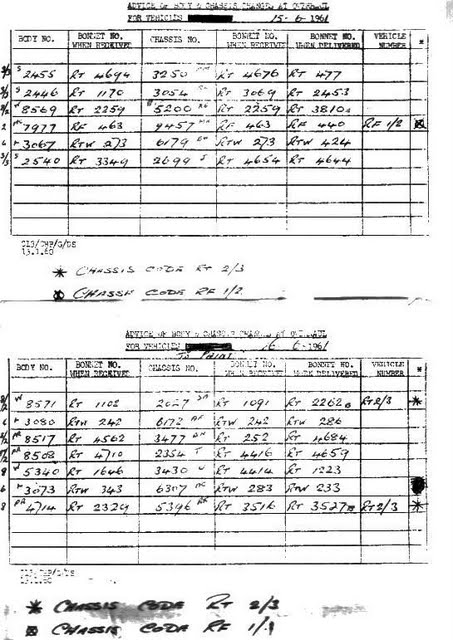 ADVICE OF BODY & CHASSIS CHANGES AT OVERHAUL
FOR VEHICLES 15-6-1961
BODY NO. BONNET NO. WHEN RECEIVED CHASSIS NO. BONNET NO. WHEN RECEIVED BONNET NO. WHEN DELIVERED VEHICLE NUMBER *
3/3 S 2455 RT 4694 3250 RT 4676 RT 477
S 2446 RT 1170 3054 RT 3069 RT 2453
W 8569 RT 2259 5200 RT 2259 RT 3810
2 7977 RF 463 9457 RF 463 RF 440 RF 1/2
6 3067 RTW 273 6179 RTW 273 RTW 424
3/3 S 2540 RT 3349 2699 S RT 4654 RT 4644
13.1.60
* CHASSIS CODE RT 2/3
CHASSIS CODE RF 1/2
ADVICE OF BODY & CHASSIS CHANGES AT OVERHAUL
FOR VEHICLES 16-6-1961
BODY NO. BONNET NO. WHEN RECEIVED CHASSIS NO. BONNET NO. WHEN RECEIVED BONNET NO. WHEN DELIVERED VEHICLE NUMBER *
W 8571 RT 1102 2027 RT 1091 RT 2262 RT 2/3 *
6 3080 RTW 242 6172 RTW 242 RTW 286
8517 RT 4562 3477 RT 252 RT 4684
8508 RT 4710 2354 T RT 4416 RT 4659
8 W 5340 RT 1646 3430 RT 4414 RT 1223
6 3073 RTW 343 6307 RTW 283 RTW 233
8 4714 RT 2329 5396 RT 3516 RT 3527 RT 2/3 *
* CHASSIS CODE RT 2/3
CHASSIS CODE RF